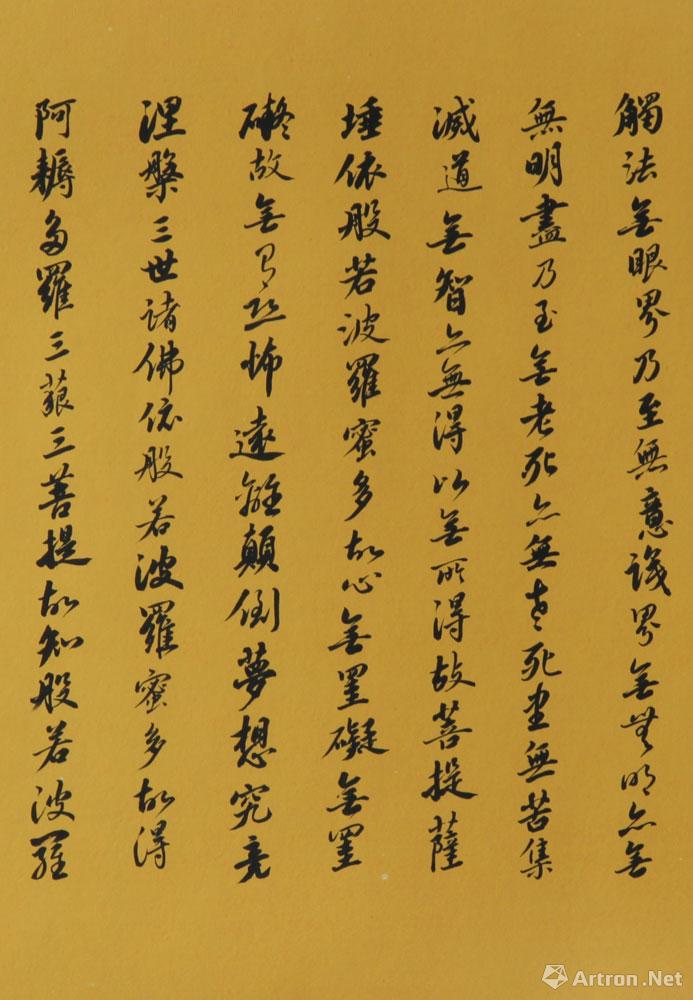 觸法無眼界乃至無意識界無無明亦無
無明盡乃至無老死亦無老死盡無苦集
滅道無智亦無得以無所得故菩提薩
埵依般若波羅蜜多故心無罣礙無罣
礙故無有恐怖遠離顛倒夢想究竟
涅槃三世諸佛依般若波羅蜜多故得
阿耨多羅三藐三菩提故知般若波羅
Artron.Net